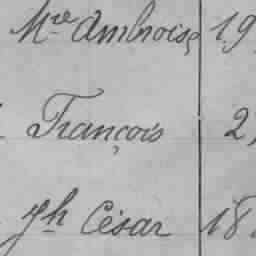 Mre Ambroise 19
François 2
Jh César 18